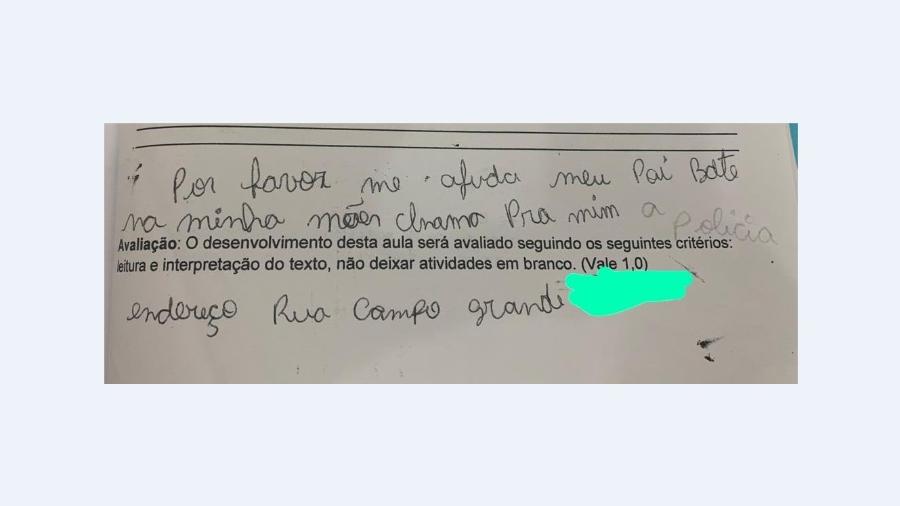 Por favor me ajuda meu Pai Bate
na minha mães chama Pra mim a Policia
Avaliação: O desenvolvimento desta aula será avaliado seguindo os seguintes critérios:
leitura e interpretação do texto, não deixar atividades em branco. (Vale 1,0)
endereço Rua Campo grande